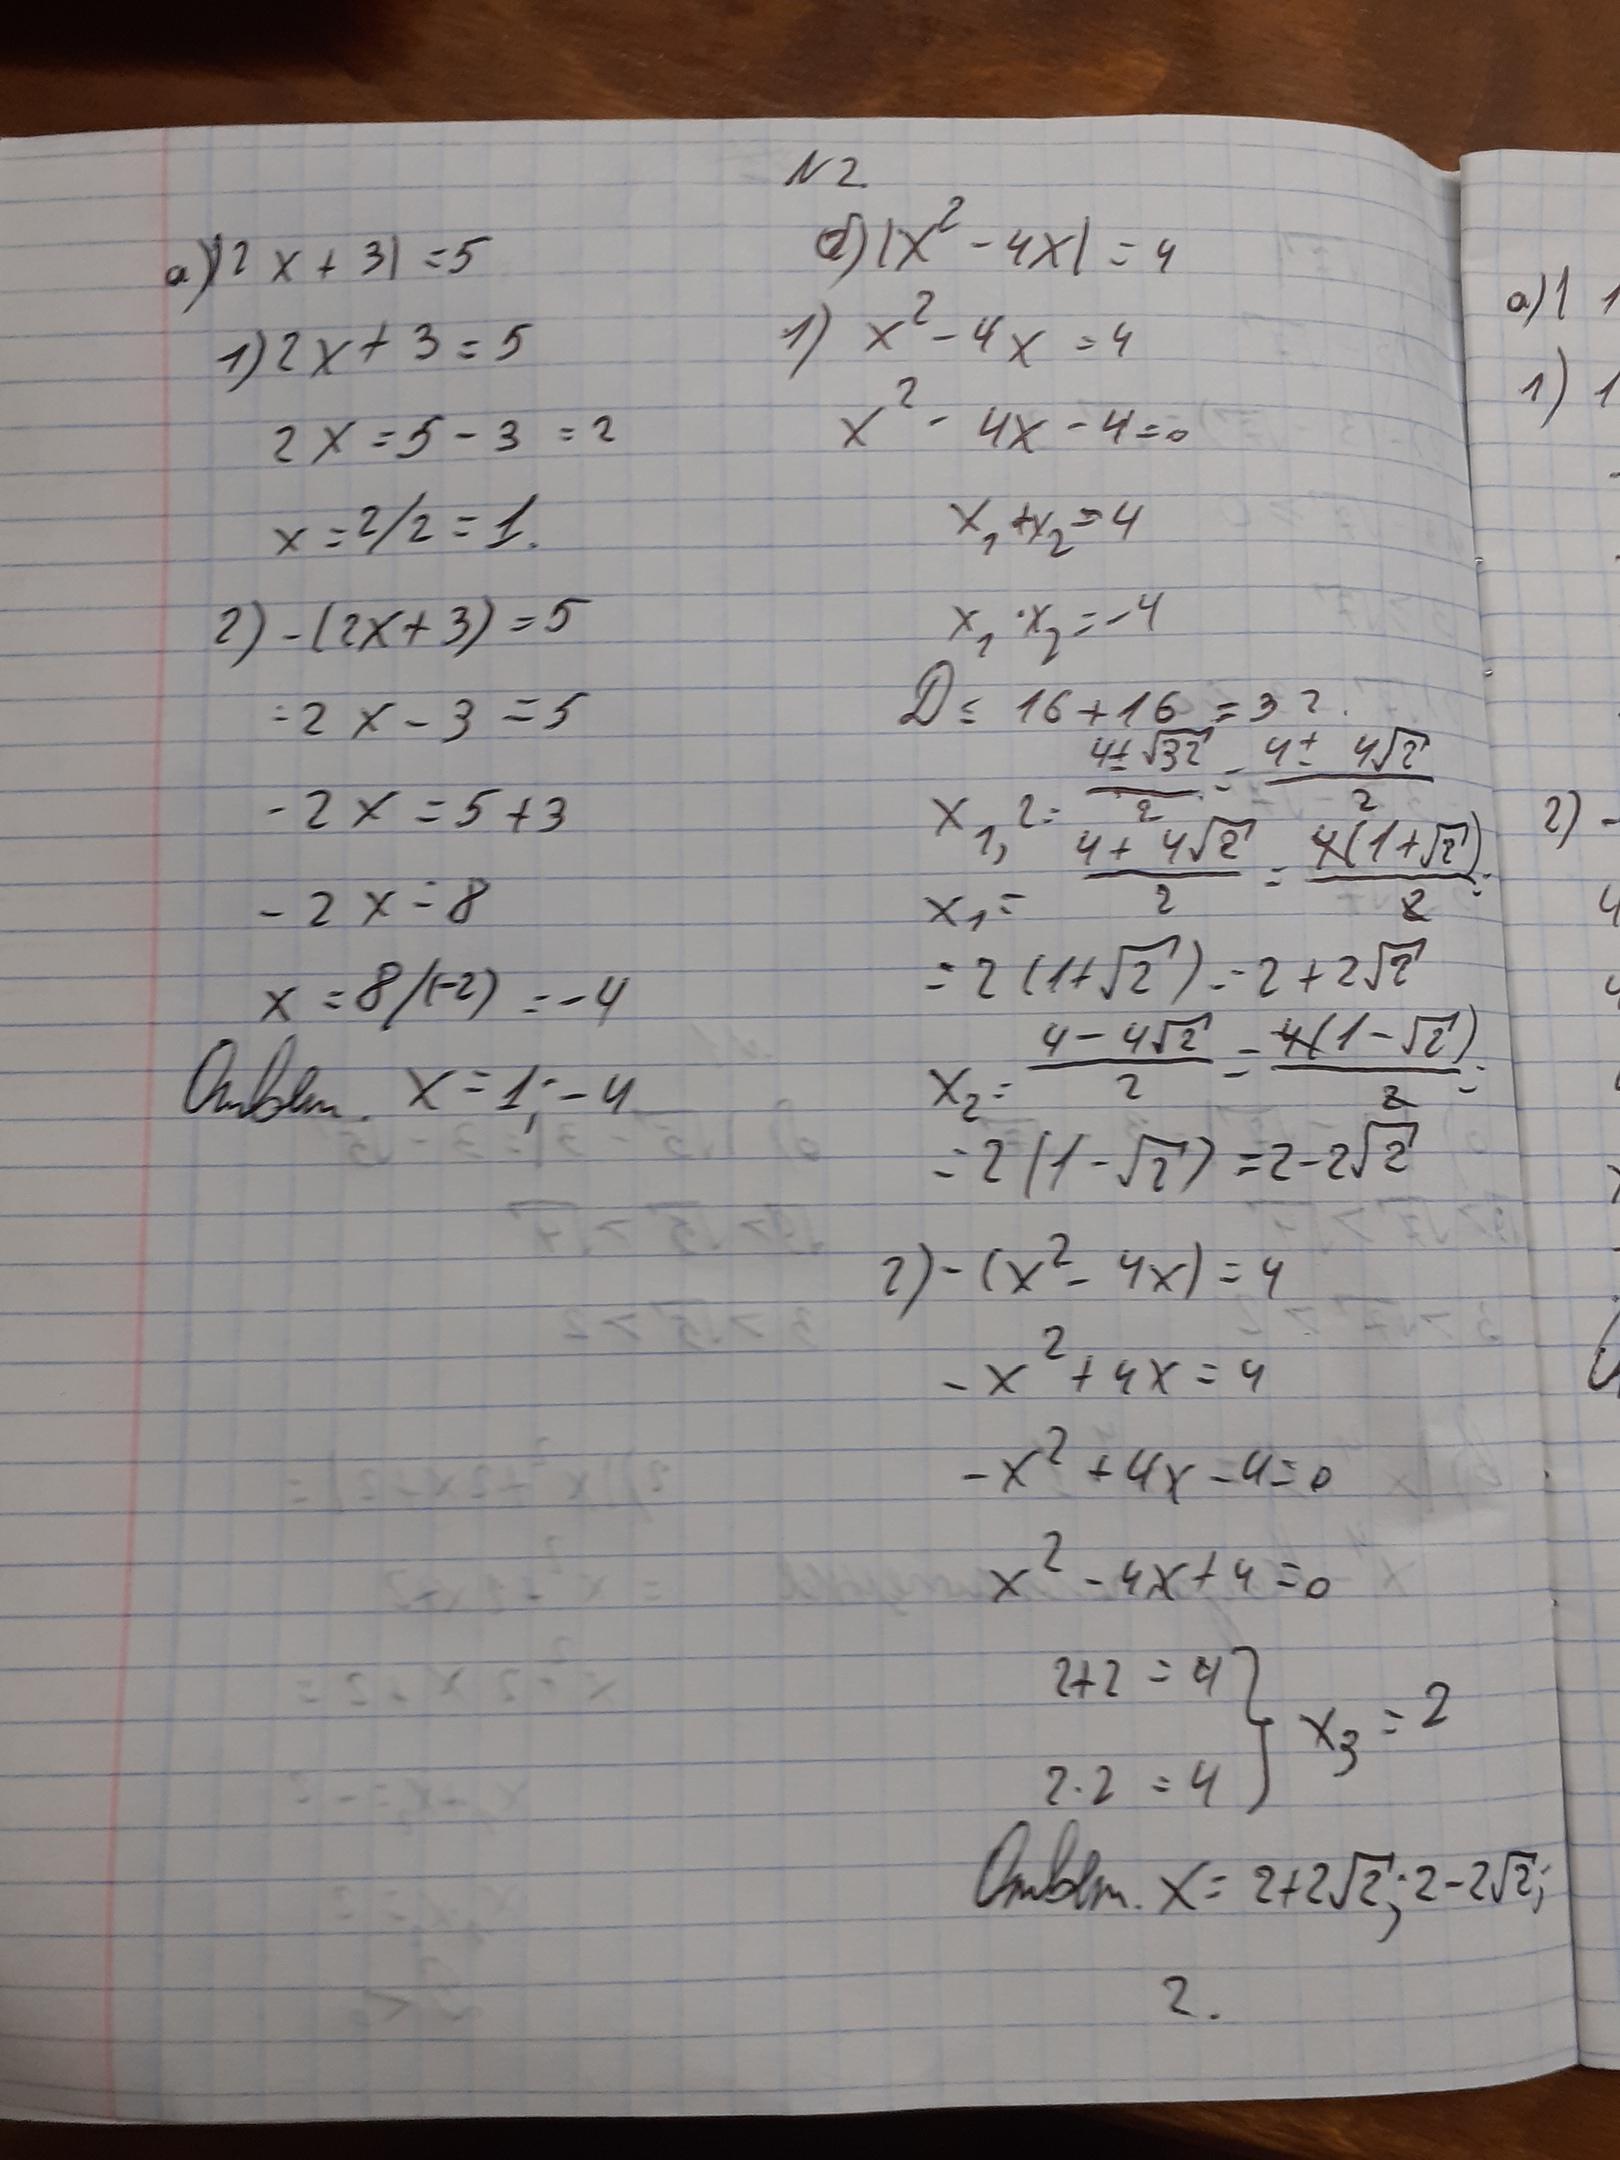 N2.
а) |2x+3| =5
1) 2x+3=5
2x=5-3=2
x=2/2=1.
2) -(2x+3)=5
-2x-3=5
-2x=5+3
-2x=8
x=8/(-2)=-4
Ответ. x=1; -4
б) |x²-4x|=4
1) x²-4x=4
x²-4x-4=0
x₁+x₂=4
x₁·x₂=-4
D=16+16=32.
x₁,₂=(4±√32)/2=(4±4√2)/2
x₁=(4+4√2)/2=4(1+√2)/2=
=2(1+√2)=2+2√2
x₂=(4-4√2)/2=4(1-√2)/2=
=2(1-√2)=2-2√2
2) -(x²-4x)=4
-x²+4x=4
-x²+4x-4=0
x²-4x+4=0
2+2=4
2·2=4 } x₃=2
Ответ. x=2+2√2; 2-2√2;
2.
а) | 1
1) 1
2) -